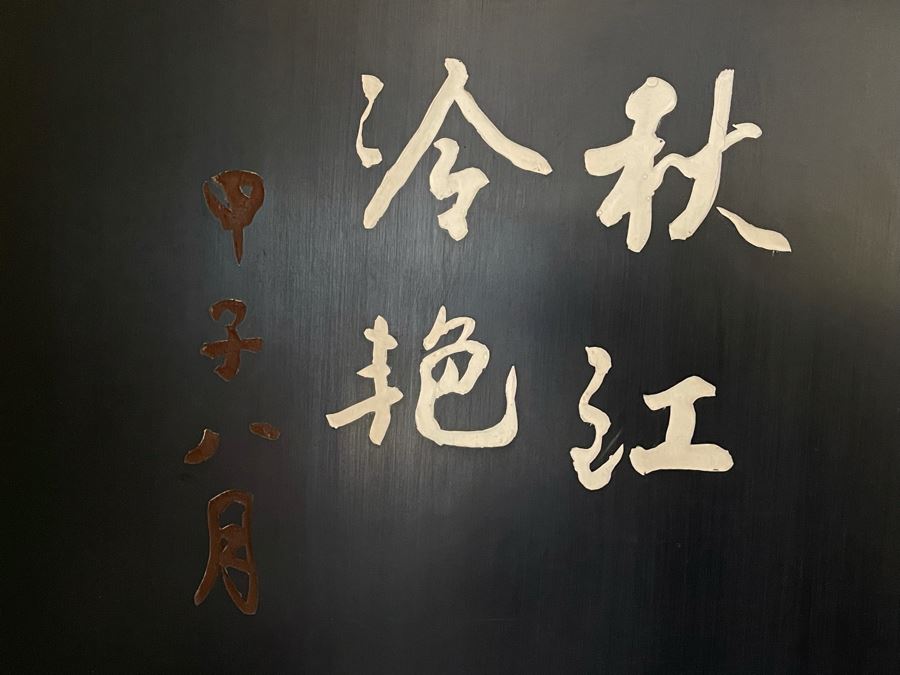 秋红
冷艳
甲子八月